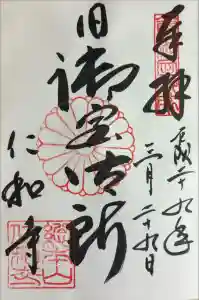 奉拝
平成二十九年
三月二十九日
旧御室御所
仁和寺